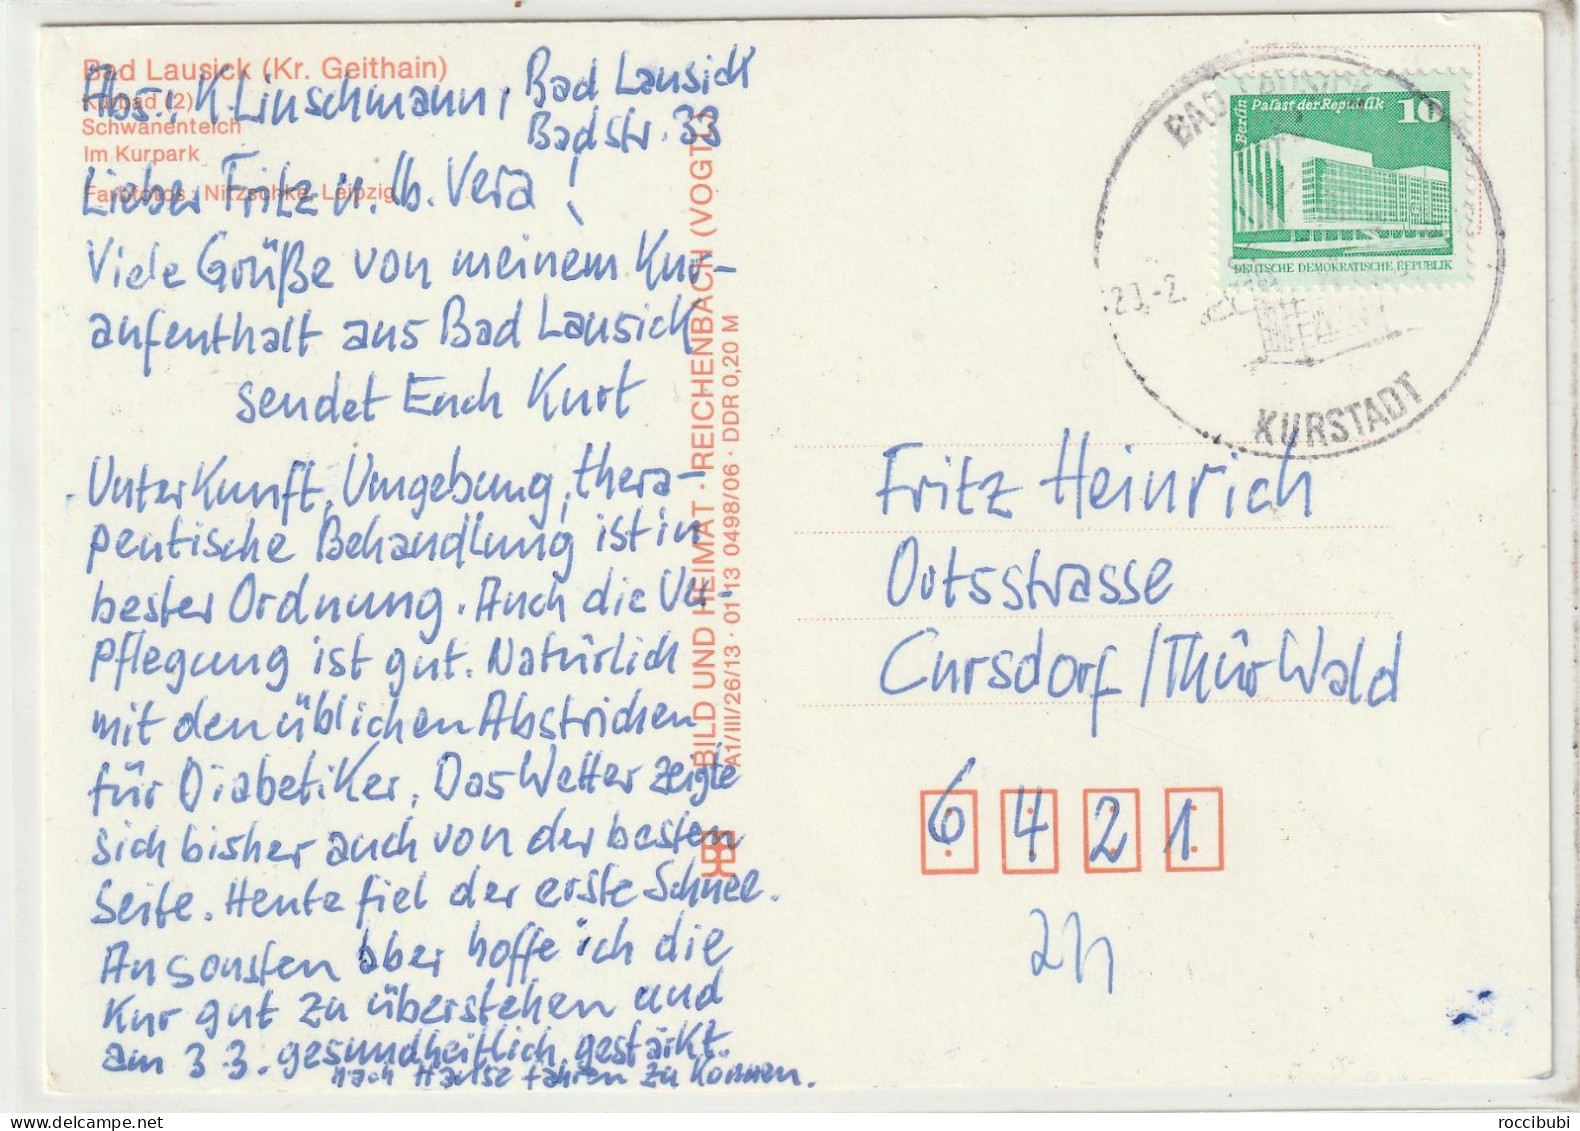 Bad Lausick (Kr. Geithain)
Kurbad (2)
Schwanenteich
Im Kurpark
Farbfotos: Nitzschke, Leipzig
Abs.: K. Linschmann, Bad Lausick
Badstr. 33
Lieber Fritz u. lb. Vera!
Viele Grüße von meinem Kur-
aufenthalt aus Bad Lausick
sendet Euch Kurt
Unterkunft, Umgebung, thera-
peutische Behandlung ist in
bester Ordnung. Auch die Ver-
pflegung ist gut. Natürlich
mit den üblichen Abstrichen
für Diabetiker. Das Wetter zeigte
sich bisher auch von der besten
Seite. Heute fiel der erste Schnee.
Ansonsten aber hoffe ich die
Kur gut zu überstehen und
am 3.3. gesundheitlich gestärkt
nach Hause fahren zu können.
BILD UND HEIMAT · REICHENBACH (VOGTL)
A1/III/26/13 · 01 13 0498/06 · DDR 0,20 M
BAD LAUSICK
Berlin Palast der Republik 10
DEUTSCHE DEMOKRATISCHE REPUBLIK
KURSTADT
Fritz Heinrich
Ortsstrasse
Cursdorf/ThürWald
6421
roccibubi